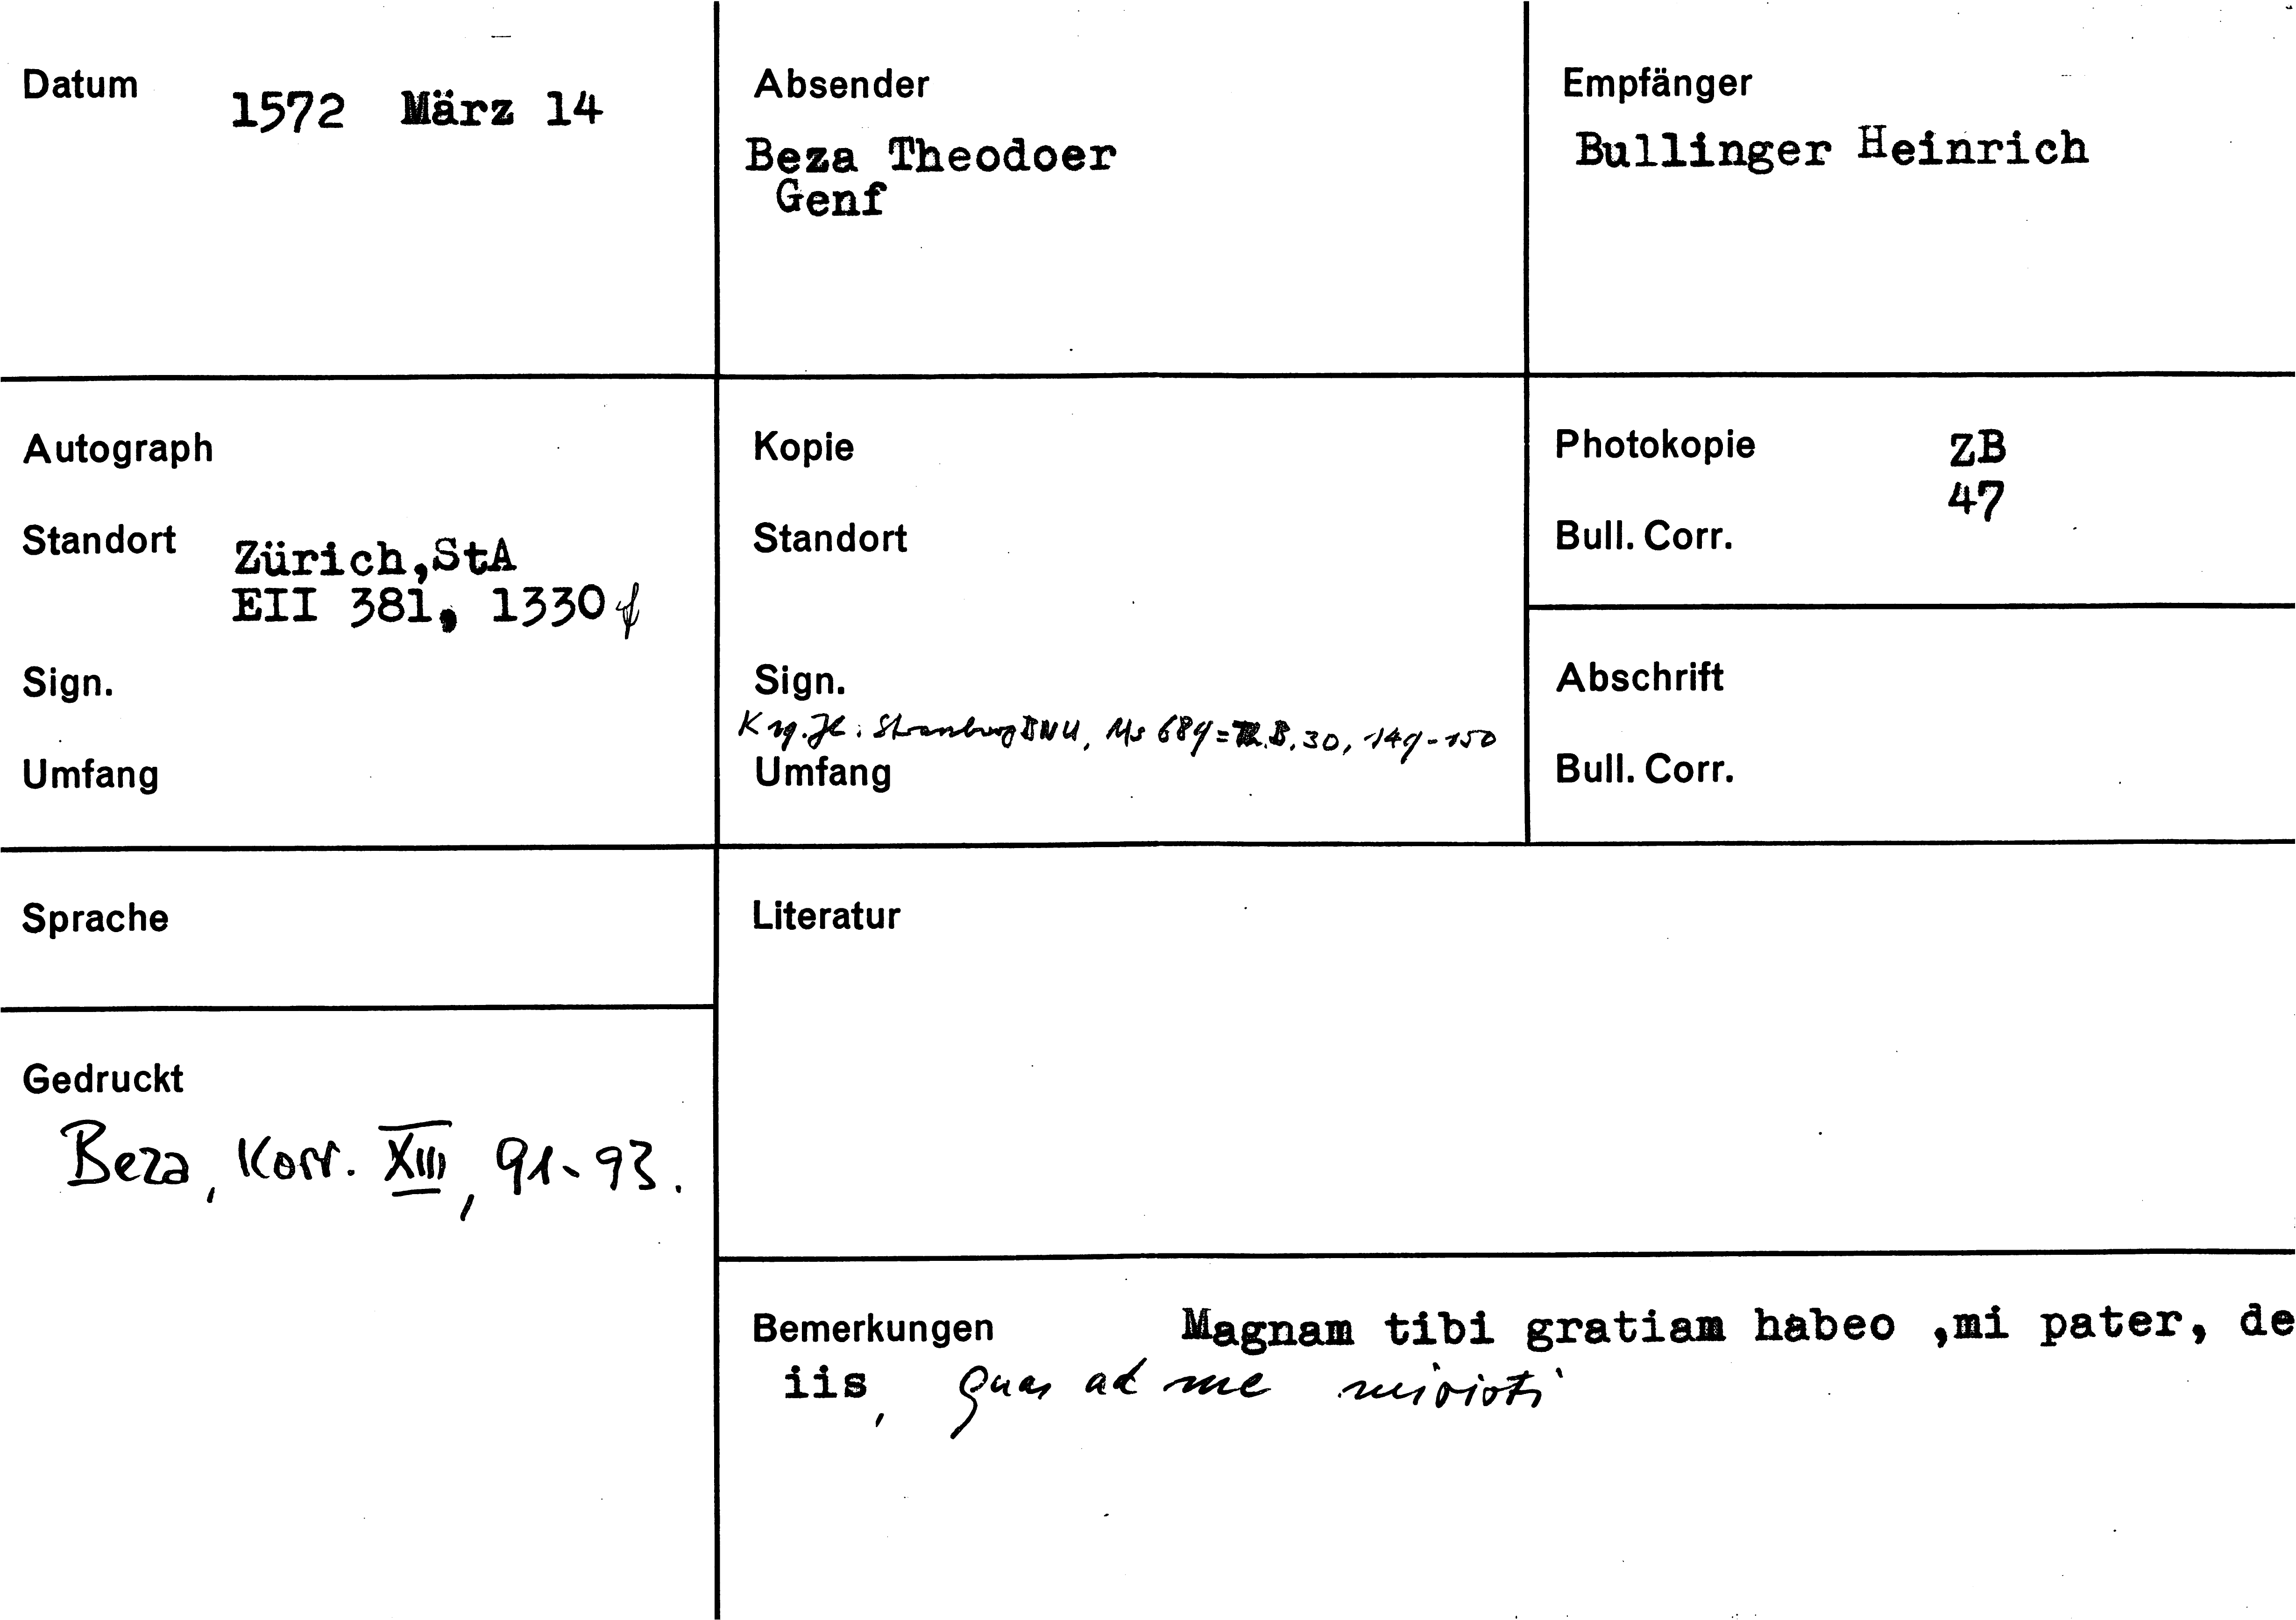 Datum
1572 März 14
Absender
Beza Theodoer
Genf
Empfänger
Bullinger Heinrich
Autograph
Standort Zürich,StA
EII 381, 1330 f
Sign.
Umfang
Kopie
Standort
Sign.
Strassburg BNU, Ms 689 = Th. B. 30, 149-150
Umfang
Photokopie ZB
47
Bull. Corr.
Abschrift
Bull. Corr.
Sprache
Literatur
Gedruckt
Beza, Korr. XIII, 91-93.
Bemerkungen Magnam tibi gratiam habeo ,mi pater, de
iis, quas ad me